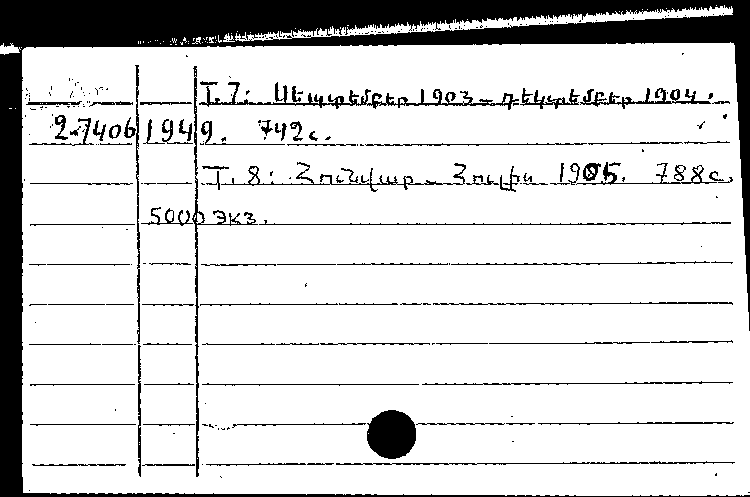 Т. 7: Սեպտեմբեր 1903 – դեկտեմբեր 1904.
2-7406 1949. 742с.
Т. 8: Հունվար – Հուլիս 1905. 788с.
5000 экз.